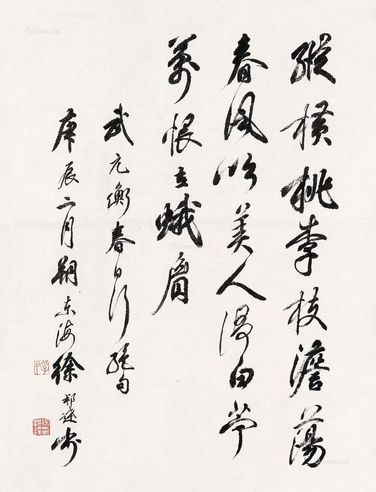 縱橫桃李枝澹蕩
春風吹美人謌白苧
萬恨在蛾眉
武元衡春日絕句
庚辰二月朔東海徐邦達